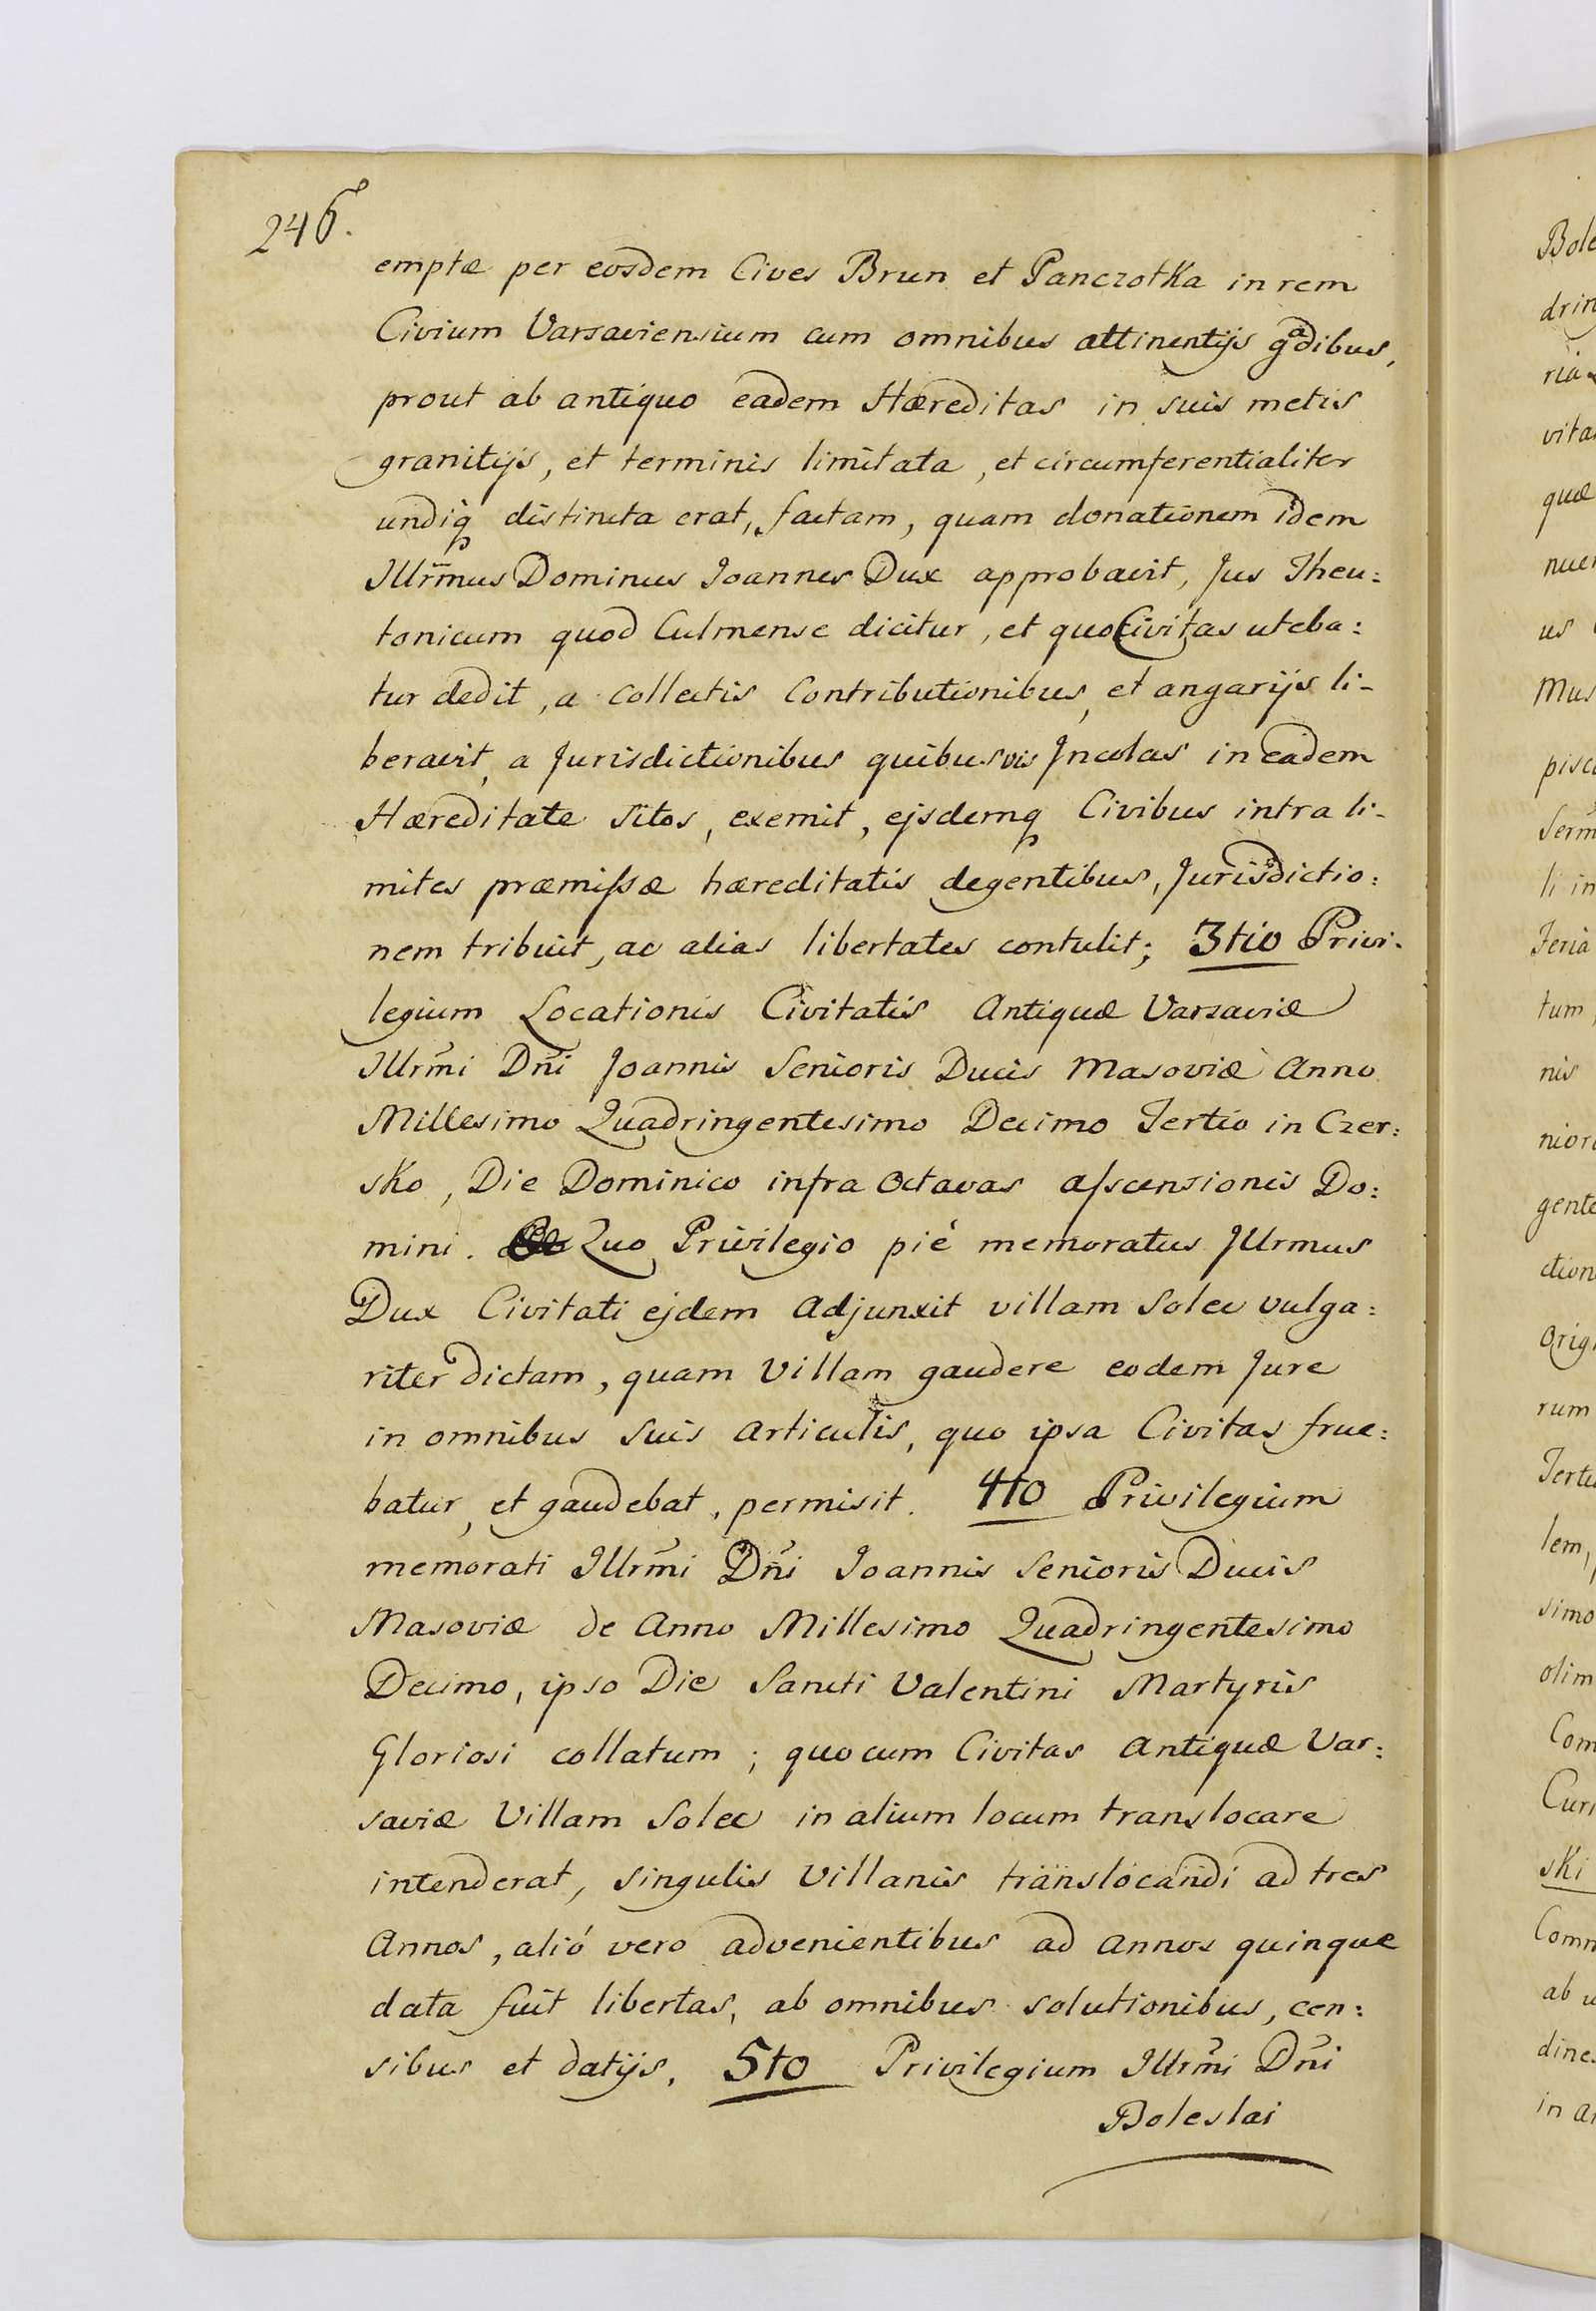 246.
emptæ per eosdem Cives Brun et PanczotKa in rem
Civium Varsaviensium cum omnibus attinentijs gãdibus,
prout ab antiquo eadem Hæreditas in suis metis
granitijs, et terminis limitata, et circumferentialiter
undiq̨ distincta erat, factam, quam donationem idem
Illr̃mus Dominus Joannes Dux approbavit, Jus Theu:
tonicum quod Culmense dicitur, et quo Civitas uteba:
tur dedit, a Collectis Contributionibus, et angarijs li-
beravit, a Jurisdictionibus quibusvis Incolas in eadem
Hæreditate sitos, exemit, ejsdemq̨ Civibus intra li-
mites præmiſsæ hæreditatis degentibus, Jurisdictio:
nem tribuit, ac alias libertates contulit; 3tio Privi-
legium Locationis Civitatis Antiquæ Varsaviæ
Illrm̃i Dñi Joannis Senioris Ducis Masoviæ Anno
Millesimo Quadringentesimo Decimo Tertio in Czer:
sKo, Die Dominico infra Octavas aſscensionis Do:
mini. Quo Privilegio piè memoratus Illrmus
Dux Civitati ejdem Adjunxit villam Solec vulga:
riter dictam, quam Villam gaudere eodem Jure
in omnibus suis Articulis, quo ipsa Civitas frue:
batur, et gaudebat, permisit. 4to Privilegium
memorati Illrm̃i Dñi Joannis Senioris Ducis
Masoviæ de Anno Millesimo Quadringentesimo
Decimo, ipso Die Sancti Valentini Martyris
Gloriosi collatum; quocum Civitas Antiquæ Var:
saviæ Villam Solec in alium locum translocare
intenderat, singulis Villanis translocandi ad tres
Annos, alió vero advenientibus ad annos quinque
data fuit libertas, ab omnibus solutionibus, cen:
sibus et datijs. 5to Privilegium Illrm̃i Dñi
Boleslai